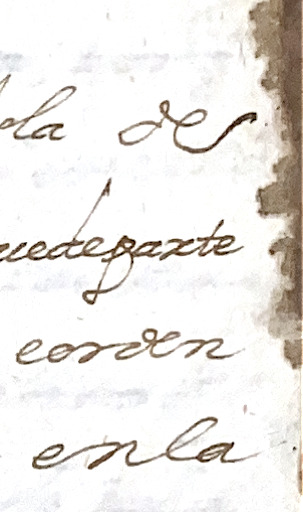 ola de
uedeparte
eorden
enla